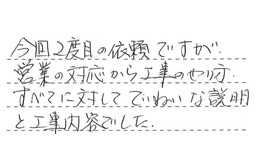 今回2度目の依頼ですが
営業の対応から工事のせ分
すべてに対して ていねいな説明
と工事内容でした.